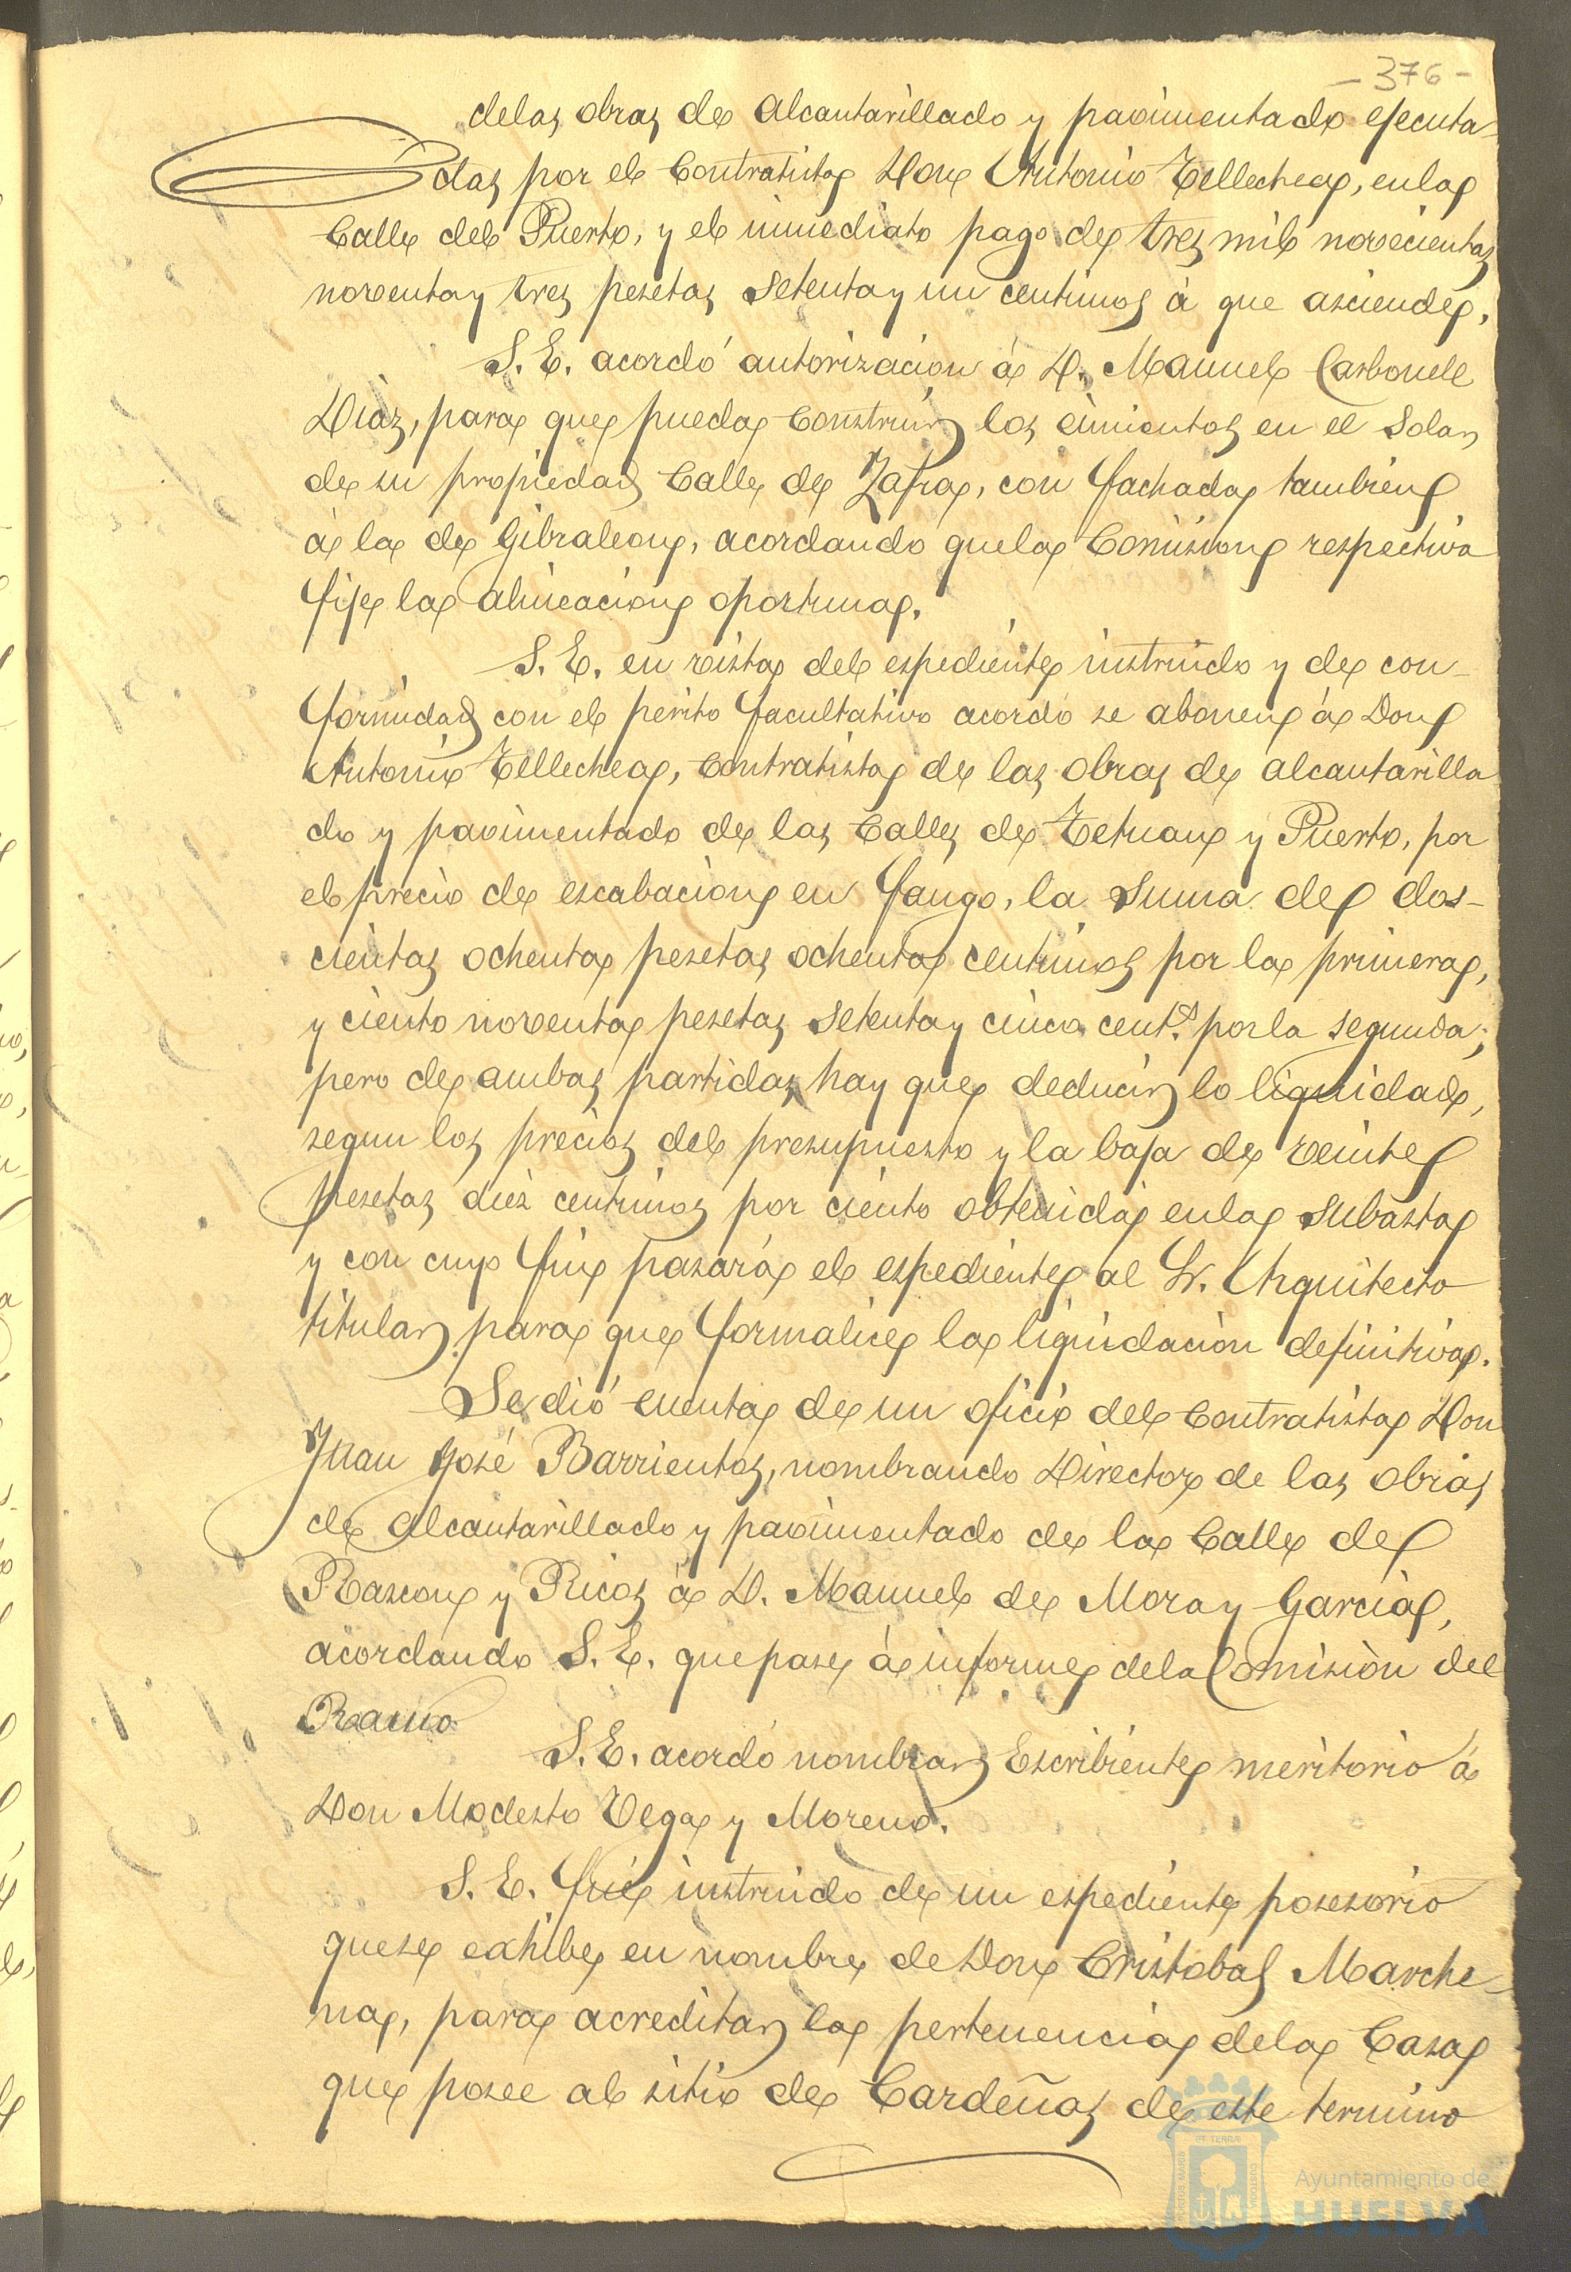 - 376 -
de las obras de alcantarillado y pavimentado ejecuta-
das por el Contratista Don Antonio Tellechea, en la
Calle del Puerto, y el inmediato pago de tres mil novecientas
noventa y tres pesetas setenta y un centimos á que asciende.
S. E. acordó autorizacion á D. Manuel Carbonell
Diaz, para que pueda construir los cimientos en el Solar
de su propiedad Calle de Zafra, con fachada tambien
á la de Gibraleon, acordando que la Comision respectiva
fije la alineacion oportuna.
S. E. en vista del espediente instruido y de con-
formidad con el perito facultativo acordó se abonen á Don
Antonio Tellechea, Contratista de las obras de alcantarilla
do y pavimentado de las Calles de Tetuan y Puerto, por
el precio de escabacion en fango, la suma de dos-
cientas ochenta pesetas ochenta centimos por la primera,
y ciento noventa pesetas setenta y cinco cents. por la segunda;
pero de ambas partidas hay que deducir lo liquidado,
segun los precios del presupuesto y la baja de veinte
pesetas diez centimos por ciento obtenida en la subasta
y con cuyo fin pasará el espediente al Sr. Arquitecto
titular para que formalice la liquidacion definitiva.
Se dió cuenta de un oficio del Contratista Don
Juan José Barrientos, nombrando Director de las obras
de alcantarillado y pavimentado de la Calle de
Rascon y Ricos á D. Manuel de Mora y Garcia,
acordando S. E. que pase á informe de la Comisiòn del
Ramo
S. E. acordó nombrar Escribiente meritorio á
Don Modesto Vega y Moreno.
S. E. fué instruido de un espediente posesorio
que se exhibe en nombre de Don Cristobal Marche-
na, para acreditar la pertenencia de la Casa
que posee al sitio de Cardeñas de este termino
Ayuntamiento de
HUELVA